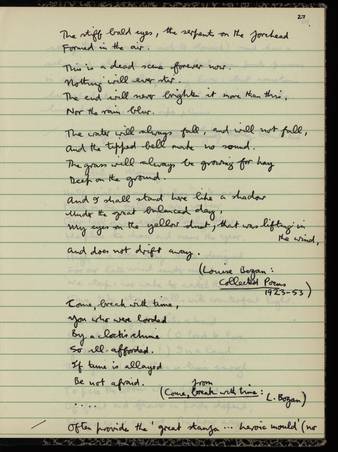 27
The stiff bald eyes, the serpent on the forehead
Formed in the air.
This is a dead scene forever now.
Nothing will ever stir.
The end will never brighten it more than this,
Nor the rain blur.
The water will always fall, and will not fall,
And the tipped bell make no sound.
The grass will always be growing for hay
Deep on the ground.
And I shall stand here like a shadow
Under the great balanced day,
My eyes on the yellow dust, that was lifting in
the wind,
And does not drift away.
(Louise Bogan:
Collected Poems
1923-53)
Come, break with time,
You who were lorded
By a clock's chime
So ill afforded.
If time is allayed
Be not afraid.
from
(Come, break with time: L. Bogan)
.....
Often provide the 'great stanza ... heroic mould' (no